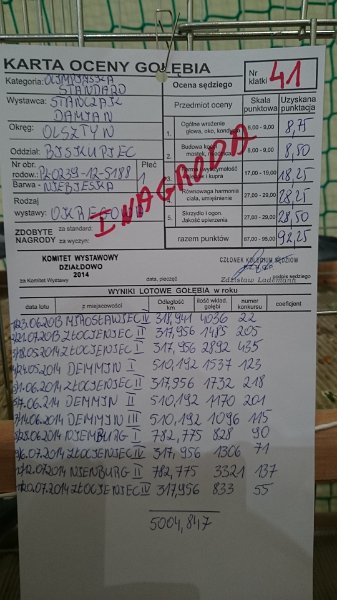 KARTA OCENY GOŁĘBIA
Nr klatki 41
Kategoria: OLIMPIJSKA STANDARD
Wystawca: STAŃCZAK DAMIAN
Okręg: OLSZTYN
Oddział: BISKUPIEC
Nr obr. rodow.: PL-0239-12-5188
Płeć 1
Barwa - NIEBIESKA
Rodzaj wystawy: OKRĘGOWA
ZDOBYTE NAGRODY
za standard:
za wyczyn:
I NAGRODA
Ocena sędziego
Przedmiot oceny Skala punktowa Uzyskana punktacja
1. Ogólne wrażenie głowa, oko, kondycja 8,75
2. Budowa kośćca mostek, 8,50
3. 17,00 - 19,00 18,25
4. Równowaga harmonia ciała, umięśnienie 28,25
5. Skrzydło i ogon Jakość upierzenia 28,50
razem punktów 92,25
KOMITET WYSTAWOWY
DZIAŁDOWO
2014
za Komitet Wystawowy
data, pieczęć
CZŁONEK KOLEGIUM SĘDZIÓW
podpis sędziego
WYNIKI LOTOWE GOŁĘBIA w roku
data lotu z miejscowości Odległość km ilość wkład. gołębi numer konkursu coeficjent
23.06.2013 MIROSŁAWIEC IV 318,941 4036 22
21.07.2013 ZŁOCIENIEC II 317,956 1485 205
18.05.2014 ZŁOCIENIEC I 317,956 2892 435
24.05.2014 DEMMIN I 510,192 1537 123
1.06.2014 ZŁOCIENIEC II 317,956 1732 218
7.06.2014 DEMMIN II 510,192 1170 201
14.06.2014 DEMMIN III 510,192 1096 115
28.06.2014 NIENBURG I 782,775 828 90
6.07.2014 ZŁOCIENIEC IV 317,956 1306 71
12.07.2014 NIENBURG II 782,775 3321 137
20.07.2014 ZŁOCIENIEC IV 317,956 833 55
5004,847